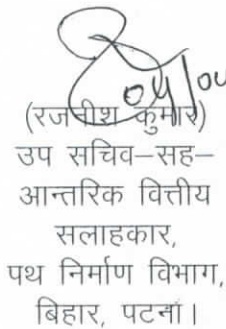 04/04
(रजनीश कुमार)
उप सचिव–सह–
आन्तरिक वित्तीय
सलाहकार,
पथ निर्माण विभाग,
बिहार, पटना।